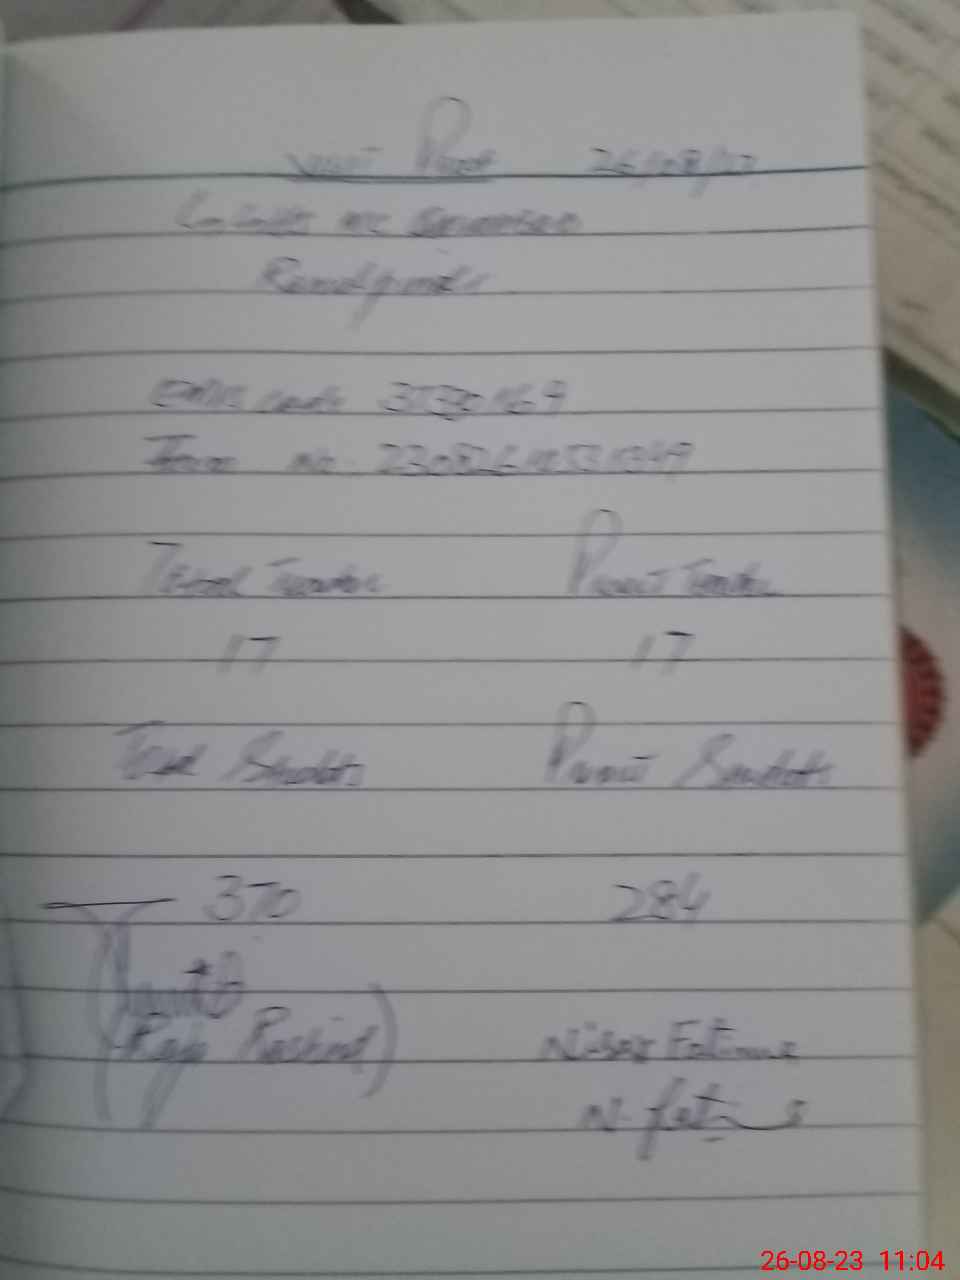 Visit Proof 26/08/23
Rawalpindi
EMIS code 37330169
Form No.
Total Teacher Present Teacher
17 17
Total Students Present Students
370 284
(Raja Rashid) Nisar Fatima
N. Fatima
26-08-23 11:04